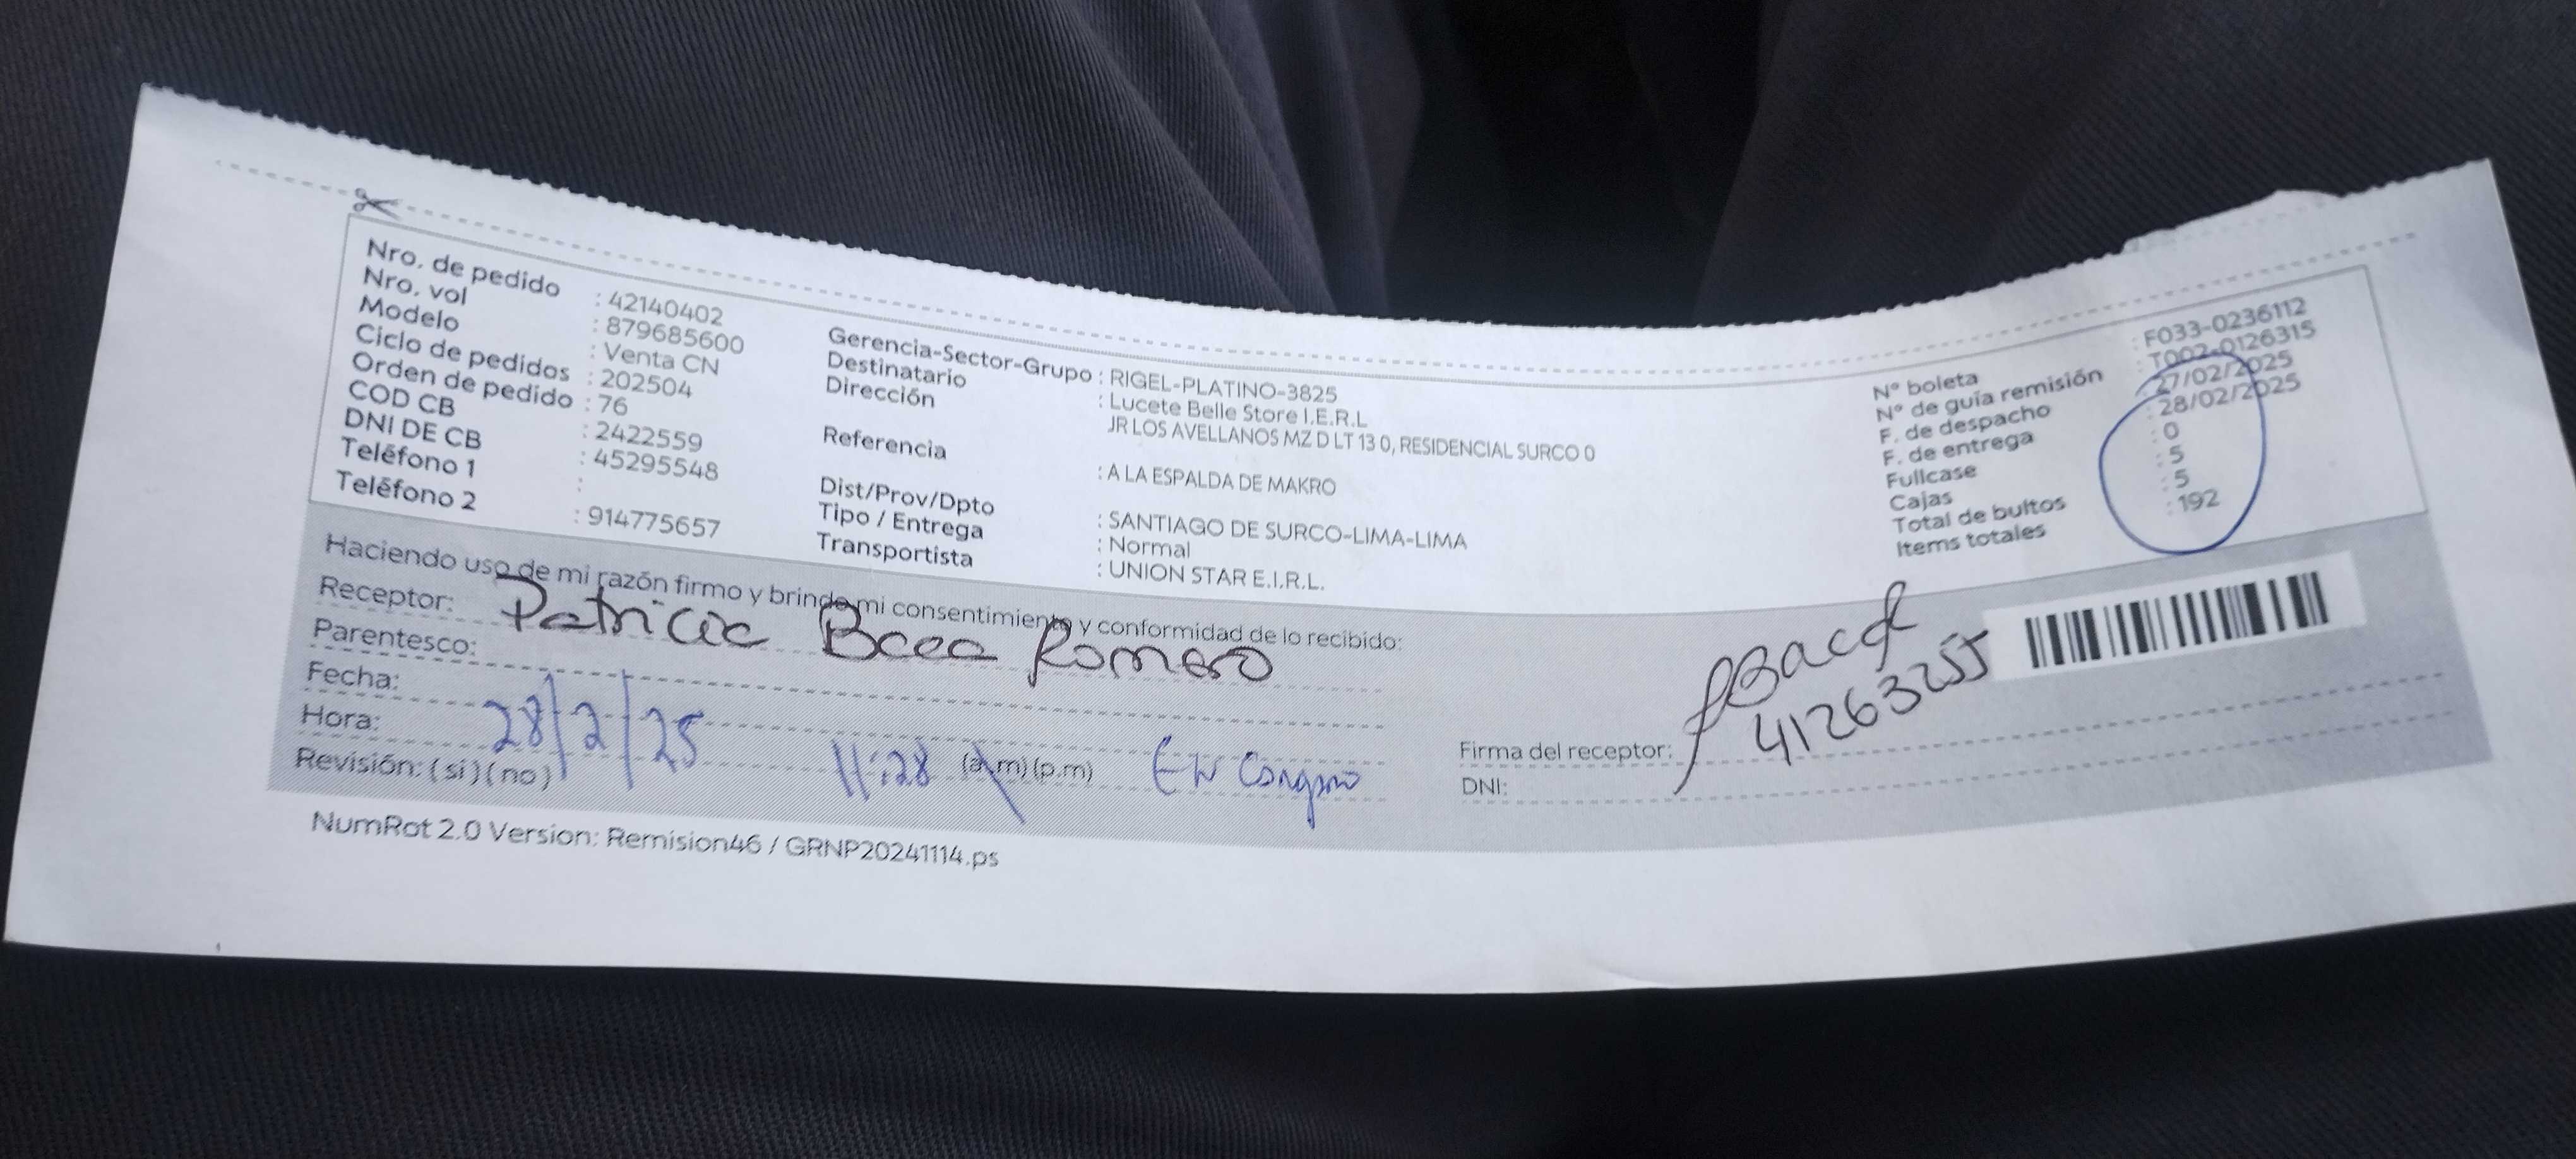 Nro. de pedido : 42140402
Nro. vol : 879685600
Modelo : Venta CN
Ciclo de pedidos : 202504
Orden de pedido : 76
COD CB : 2422559
DNI DE CB : 45295548
Teléfono 1 :
Teléfono 2 : 914775657
Gerencia-Sector-Grupo : RIGEL-PLATINO-3825
Destinatario : Lucete Belle Store I.E.R.L
Dirección JR LOS AVELLANOS MZ D LT 13 0, RESIDENCIAL SURCO 0
Referencia : A LA ESPALDA DE MAKRO
Dist/Prov/Dpto : SANTIAGO DE SURCO-LIMA-LIMA
Tipo / Entrega : Normal
Transportista : UNION STAR E.I.R.L.
N° boleta : F033-0236112
N° de guía remisión : T002-0126315
F. de despacho : 27/02/2025
F. de entrega : 28/02/2025
Fullcase : 0
Cajas : 5
Total de bultos : 5
Items totales : 192
Haciendo uso de mi razón firmo y brindo mi consentimiento y conformidad de lo recibido:
Receptor: Patricia Baca Romero
Parentesco:
Fecha: 28/2/25
Hora: 11:28 (a.m) (p.m)
Revisión: (si) (no)
Firma del receptor: Baca
DNI: 41263255
NumRot 2.0 Version: Remision46 / GRNP20241114.ps